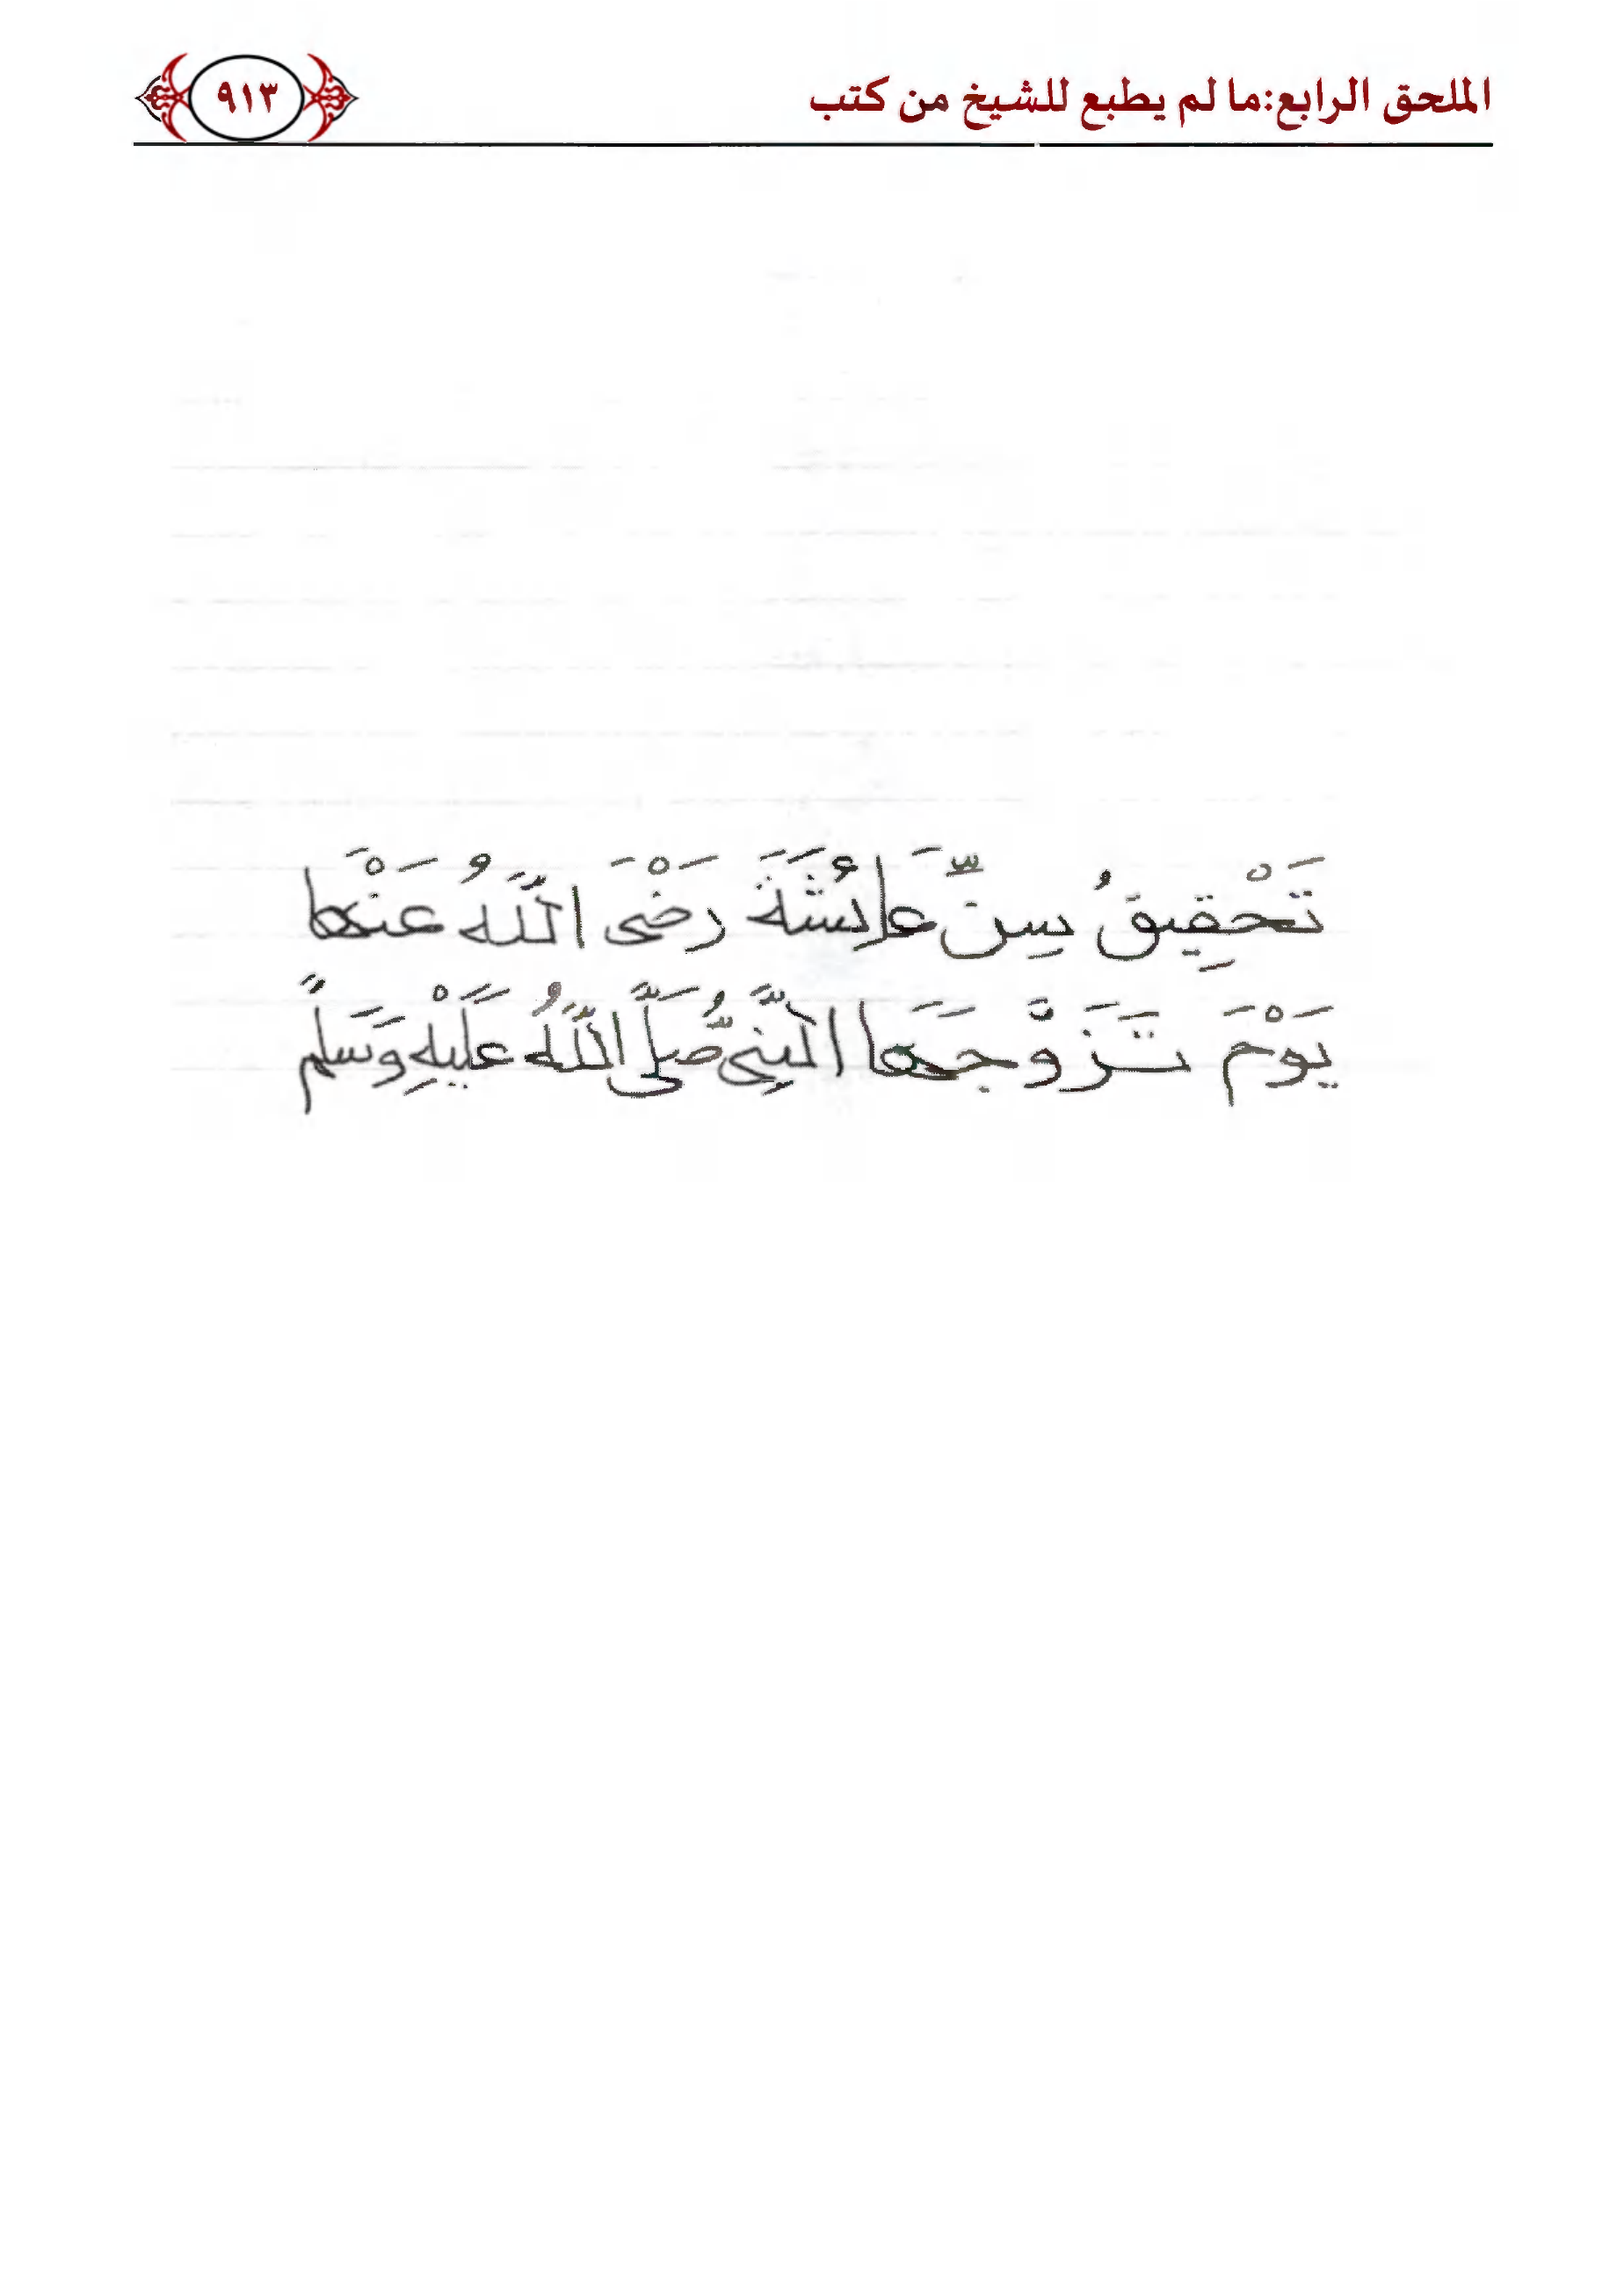 الملحق الرابع:ما لم يطبع للشيخ من كتب
٩١٣
تَحْقِيقُ سِنِّ عَائِشَةَ رَضْىَ اللَّهُ عَنْهَا
يَوْمَ تَزَوَّجَهَا النَّبِىُّ صَلَّى اللَّهُ عَلَيْهِ وَسَلَّم